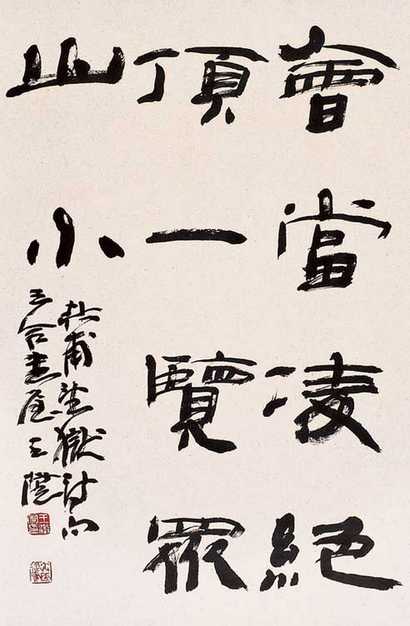 會當凌絕
頂一覽眾
山小
杜甫望嶽詩句
三合書屋